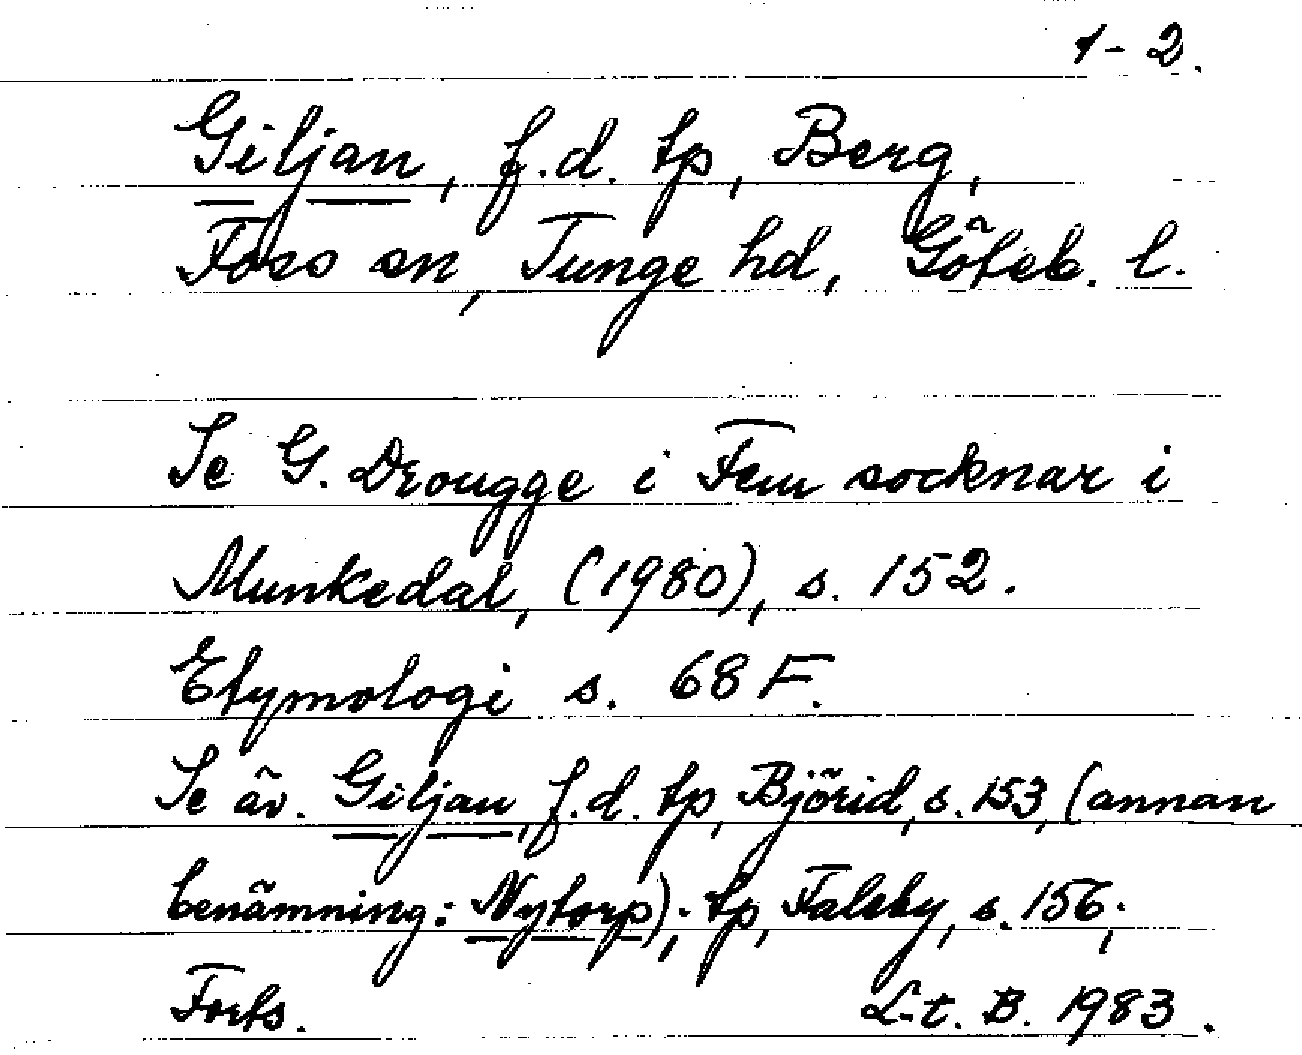 1-2.
Giljan, f.d. tp, Berg,
Foss sn, Tunge hd, Göteb. l.
Se G. Drougge i Fem socknar i
Munkedal, (1980), s. 152.
Etymologi s. 68 F.
Se äv. Giljan, f.d. tp, Björid, s. 153, (annan
benämning: Nytorp); tp, Faleby, s. 156;
Forts. L-t. B. 1983.